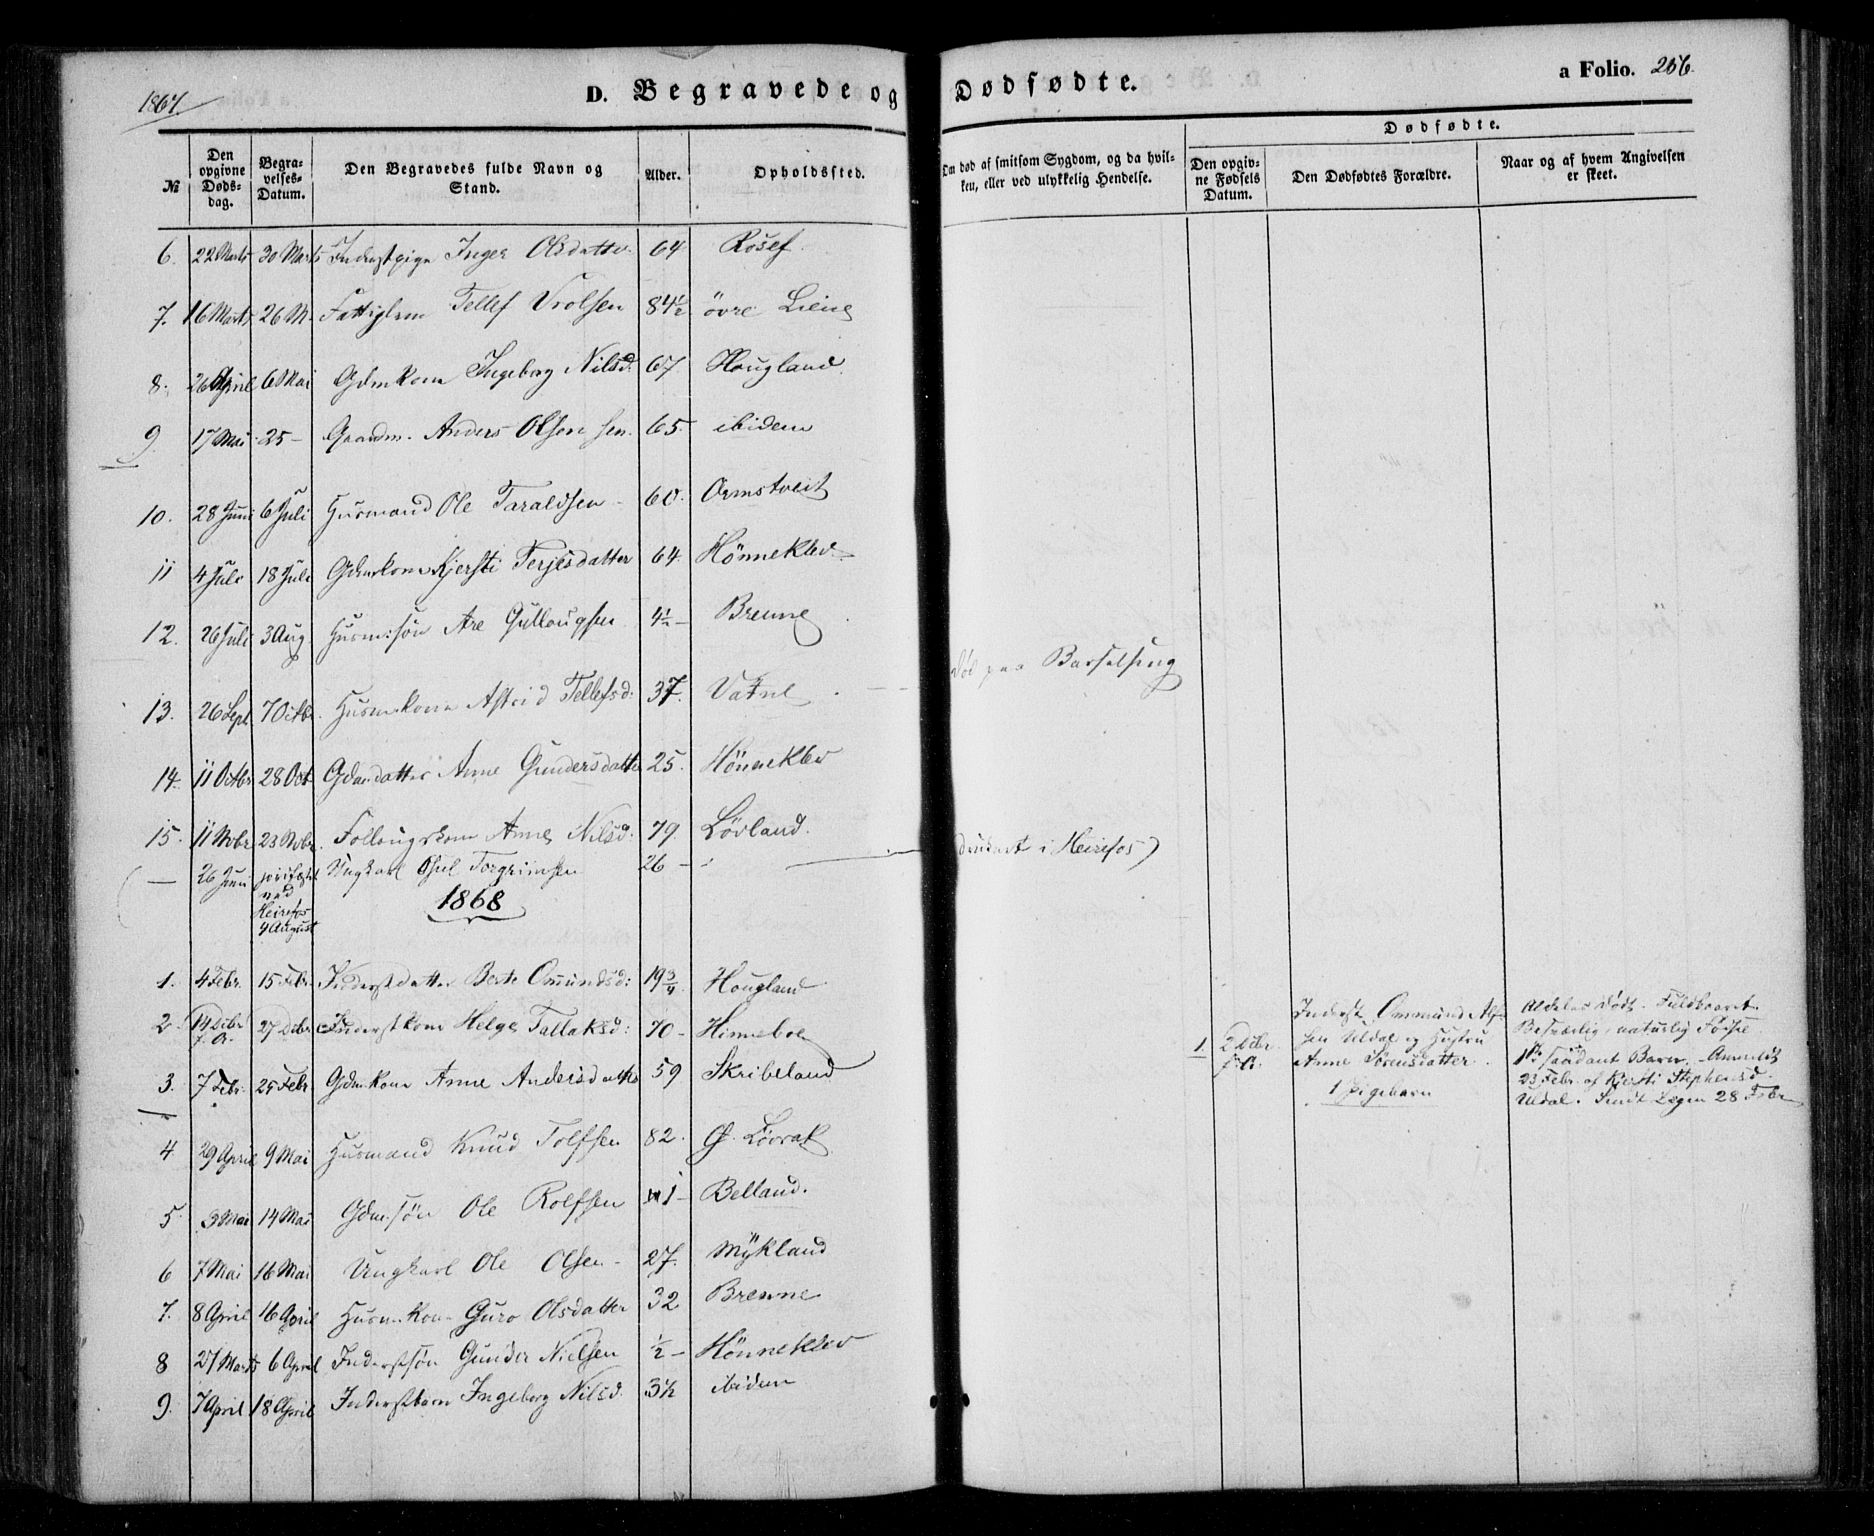 1867.
D. Begravede og Dødfødte.
a Folio. 256.
№
Den opgivne Døds-dag.
Begra-velses-Datum.
Den Begravedes fulde Navn og Stand.
Alder.
Opholdssted.
Om død af smitsom Sygdom, og da hvil-ken, eller ved ulykkelig Hendelse.
Dødfødte.
Den opgiv-ne Fødsels Datum.
Den Dødfødtes Forældre.
Naar og af hvem Angivelsen er skeet.
6. 22 Marts 30 Marts Inderstpige Inger Olsdatter 64 Rosef
7. 16 Marts 26 M. Fattiglem Tellef Vrolsen 84½ øvre Liene
8. 26 April 6 Mai Gdmkone Ingeborg Nilsd. 67 Hougland.
9. 17 Mai 25 - Gaardm. Anders Olsen sen. 65. ibidem
10. 28 Juni 6 Juli Husmand Ole Taraldsen - 60. Ormstveit
11 4 Juli 18 Juli Gdmkone Kjersti Terjesdatter 64. Hönneklev
12. 26 Juli 3 Aug. Husm:søn Are Gulleugsen 4½ - Brenne
13. 26 Sept. 7 Octbr. Husmkone Astrid Tellefsd: 37. Vatne - død paa Barselseng
14. 11 Octbr 28 Oct. Gdm.datter Anne Gundersdatter 25. Hönneklev
15. 11 Novbr. 23 Novbr. Follougskone Anne Nilsd: 79. Lövland.
— 26 Juni jordfæstet ved Heirefos 4 August Ungkarl Osul Torgrimsen 26 - druknet i Heirefos)
1868
1. 4 Febr. 15 Febr. Inderstdatter Berte Omundsd: 19¾ Hougland
2. 14 Debr f. A. 27 Debr Inderstkone Helge Tallaksd: 70 - Himeboe
3. 7 Febr. 25 Febr Gdmkone Anne Andersdatter 59 Skribeland
1. 2 Debr f. A. Inderst Ommund Alf-
sen Uldal og Hustru
Anne Sörensdatter.
1 Pigebarn
Aldeles dødt. Fuldbaaret
Besværlig, naturlig Førse
1ste saadant Barn. Anmeldt
23 Febr. af Kjersti Stephensd.
Uldal. Sendt Lægen 28 Febr
4 29 April 9 Mai Husmand Knud Tolfsen 82. G. Lövrak
5 3 Mai 14 Mai Gdm.søn Ole Rolfsen 1 - Belland.
6 7 Mai 16 Mai Ungkarl Ole Olsen - 27. Mÿkland
7. 8 April 16 April Husm.kone Guro Olsdatter 32 Brenne
8 27 Marts 6 April Inderstsøn Gunder Nielsen ½ - Hönneklev
9. 7 April 18 April Inderstbarn Ingeborg Nilsd. 3½ ibidem